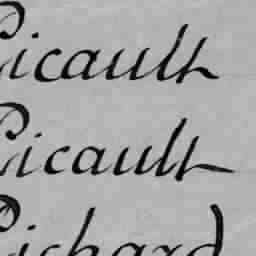 Picault
Picault
Richard